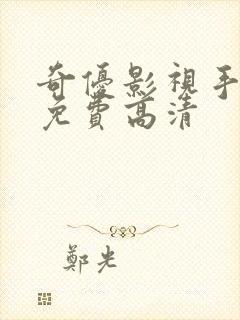 奇優影視手
免費高清
鄭光